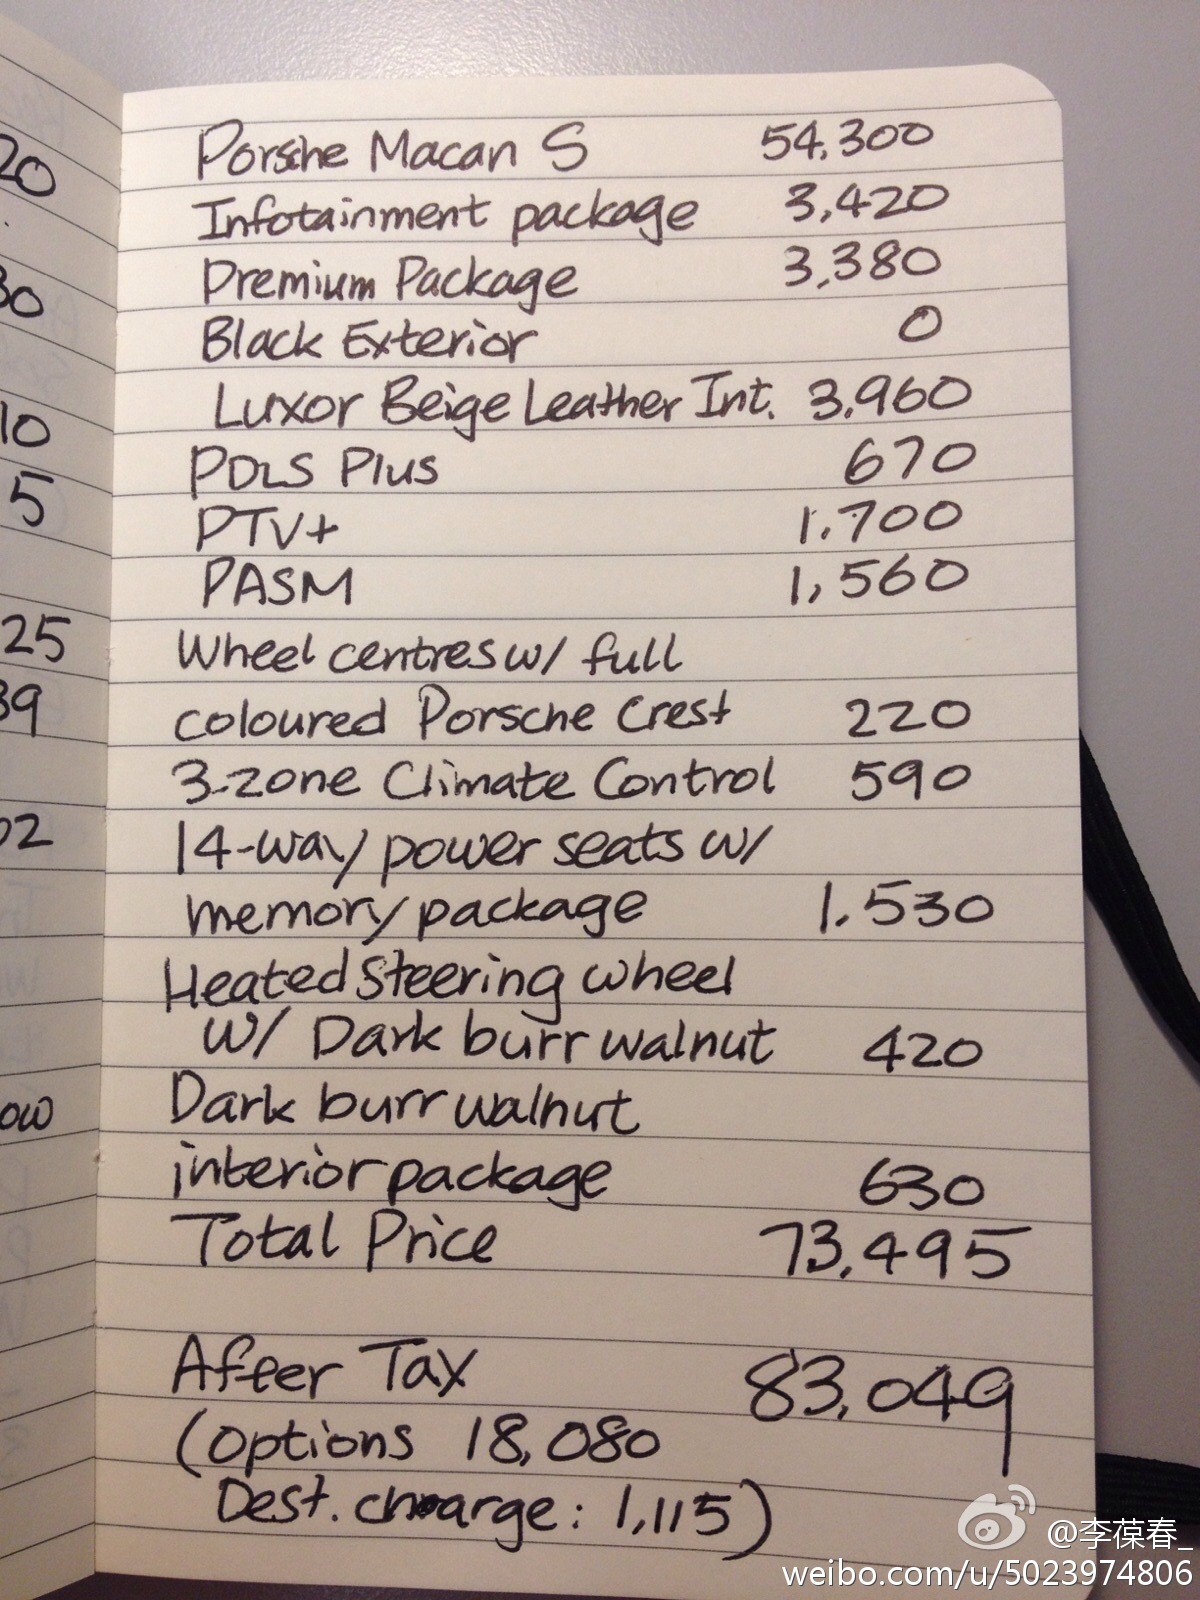 20
30
10
5
25
39
02
ow
Porsche Macan S 54,300
Infotainment package 3,420
Premium Package 3,380
Black Exterior 0
Luxor Beige Leather Int. 3,960
PDLS Plus 670
PTV+ 1,700
PASM 1,560
Wheel centres w/ full
coloured Porsche Crest 220
3-zone Climate Control 590
14-way power seats w/
memory package 1,530
Heated Steering wheel
w/ Dark burr walnut 420
Dark burr walnut
interior package 630
Total Price 73,495
After Tax 83,049
(Options 18,080
Dest. charge: 1,115)
@李葆春_
weibo.com/u/5023974806